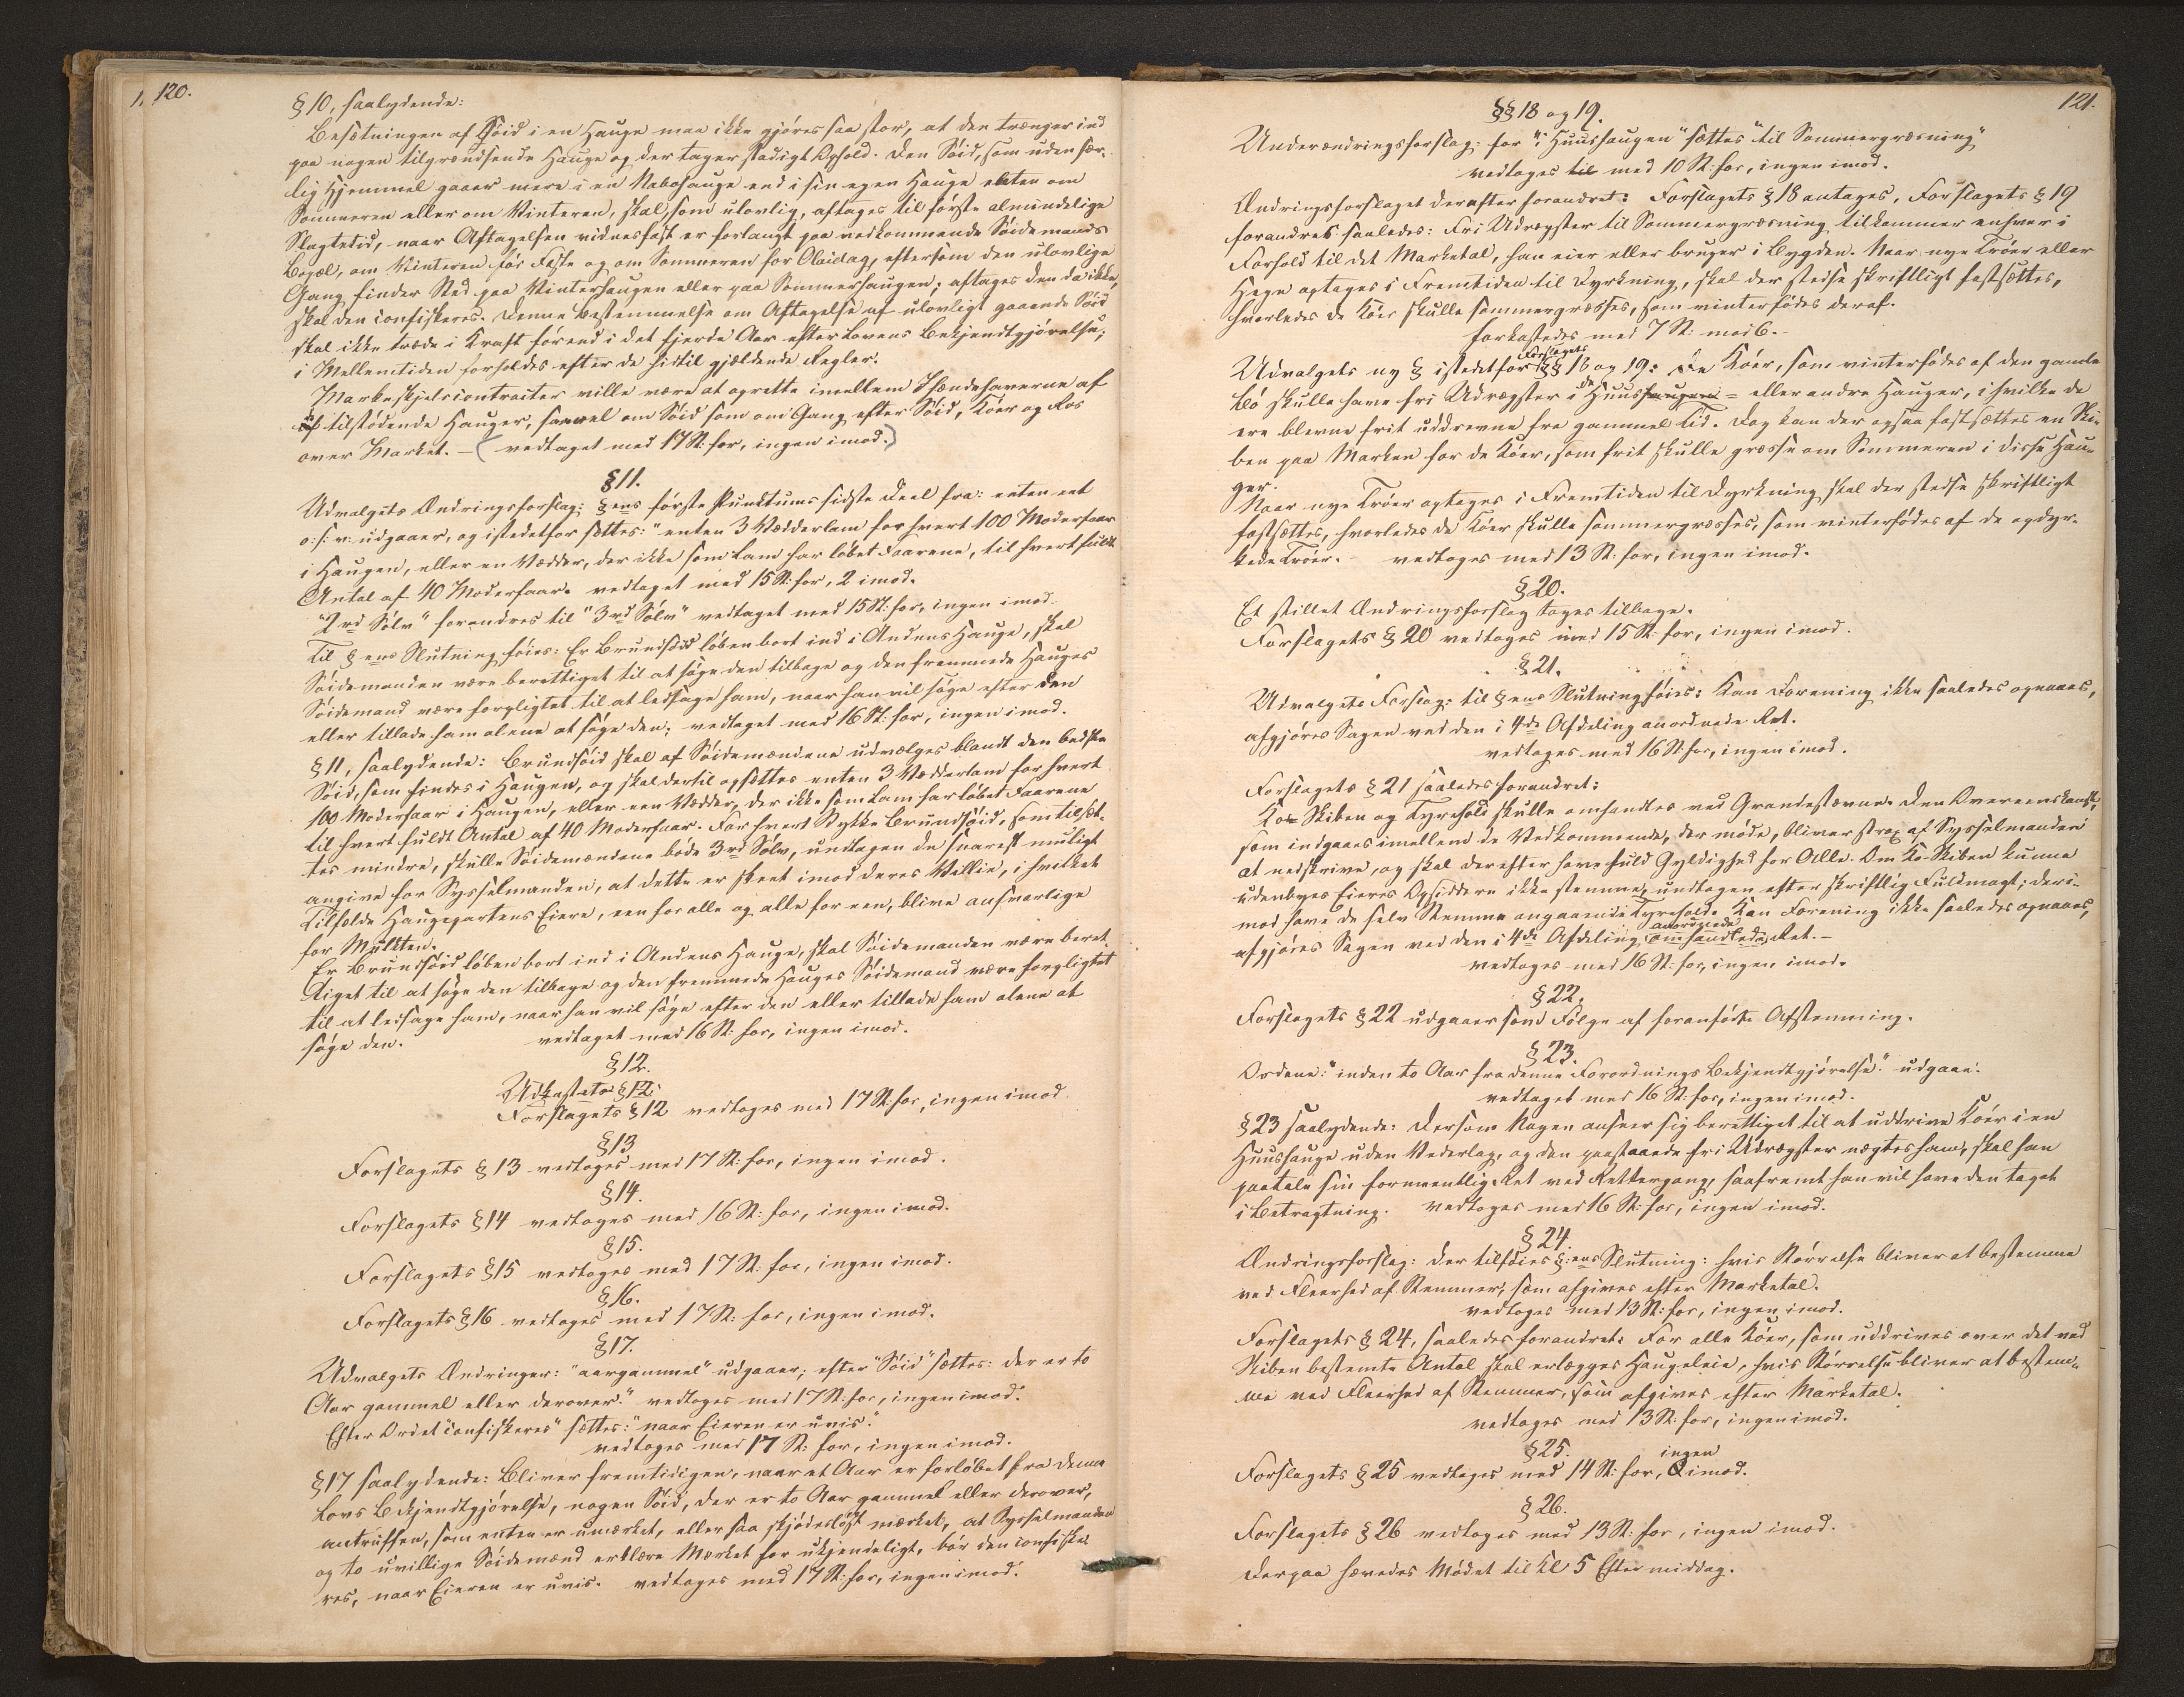 1, 120.
§ 10, saalydende:
Besætningen af Söid i en Hauge maa ikke gjöres saa stor, at den trænger ind
paa nogen tilgrændsende Hauge og der tager stadigt Ophold. Den Söid, som uden sær-
lig Hjemmel gaaer mere i en Nabohauge end i sin egen Hauge enten om
Sommeren eller om Vinteren, skal, som ulovlig, aftages til förste almindelige
Slagtetid, naar Aftagelsen vidnesfast er forlangt paa vedkommende Söidemands
Bopæl, om Vinteren för Faste og om Sommeren for Olaidag, eftersom den ulovlige
Gang finder Sted paa Vinterhaugen eller paa Sommerhaugen; aftages den da ikke,
skal den confiskeres. Denne Bestemmelse om Aftagelse af ulovligt gaaende Söid
skal ikke træde i Kraft förend i det fjerde Aar efter Lovens Bekjendtgjörelse;
i Mellemtiden forholdes efter de hidtil gjældende Regler.
Markeskjelscontracter ville være at oprette imellem Ihændehaverne af
tilstödende Hauger, saavel om Söid som om Gang efter Söid, Köer og Ros
over Market. – (vedtaget med 17 St: for, ingen imod.)
§ 11.
Udvalgets Ændringsforslag: § ens förste Punktums sidste Deel fra: enten eet
o: s: v: udgaaer, og istedetfor sættes: "enten 3 Vædderlam for hvert 100 Moderfaar
i Haugen, eller en Vædder, der ikke som Lam har löbet Faarene, til hvert fuldt
Antal af 40 Moderfaar. vedtaget med 15 St: for, 2 imod.
"2 rd Sölv" forandres til "3 rd Sölv" vedtaget med 15 St: for, ingen imod.
Til § ens Slutning föies: Er Brundsöid löben bort ind i Andens Hauge, skal
Söidemanden være berettiget til at söge den tilbage og den fremmede Hauges
Söidemand være forpligtet til at ledsage ham, naar han vil söge efter den
eller tillade ham alene at söge den; vedtaget med 16 St: for, ingen imod.
§ 11, saalydende: Brundsöid skal af Söidemændene udvælges blandt den bedste
Söid, som findes i Haugen, og skal dertil opsættes enten 3 Vædderlam for hvert
100 Moderfaar i Haugen, eller een Vædder, der ikke som Lam har löbet Faarene
til hvert fuldt Antal af 40 Moderfaar. For hvert Stykke Brundsöid, som tilsæt-
tes mindre, skulle Söidemændene böde 3 rd Sölv, undtagen de snarest muligt
angive for Sysselmanden, at dette er skeet imod deres Villie, i hvilket
Tilfælde Haugepartens Eiere, een for alle og alle for een, blive ansvarlige
for Mulkten.
Er Brundsöid löben bort ind i Andens Hauge, skal Söidemanden være beret-
tiget til at söge den tilbage og den fremmede Hauges Söidemand være forpligtet
til at ledsage ham, naar han vil söge efter den eller tillade ham alene at
söge den. vedtaget med 16 St: for, ingen imod.
§ 12.
Udkastets § 12:
Forslagets § 12 vedtoges med 17 St: for, ingen imod.
§ 13
Forslagets § 13 vedtoges med 17 St: for, ingen imod.
§ 14.
Forslagets § 14 vedtoges med 16 St: for, ingen imod.
§ 15.
Forslagets § 15 vedtoges med 17 St: for, ingen imod.
§ 16.
Forslagets § 16 vedtoges med 17 St: for, ingen imod.
§ 17.
Udvalgets Ændringer: "aargammel" udgaaer; efter "Söid" sættes: der er to
Aar gammel eller derover." vedtoges med 17 St: for, ingen imod.
Efter Ordet "confiskeres" sættes: "naar Eieren er uvis."
vedtoges med 17 St: for, ingen imod.
§ 17 saalydende: Bliver fremtidigen, naar et Aar er forlöbet fra denne
Lovs Bekjendtgjörelse, nogen Söid, der er to Aar gammel eller derover,
antruffen, som enten er umærket, eller saa skjödeslöst mærket, at Sysselmanden
og to uvillige Söidemænd erklære Mærket for ukjendeligt, bör den confiske-
res, naar Eieren er uvis. vedtoges med 17 St: for, ingen imod.
121.
§§ 18 og 19.
Underændringsforslag: for "i Huushaugen" sættes "til Sommergræsning"
vedtoges til med 10 St: for, ingen imod.
Ændringsforslaget derefter forandret: Forslagets § 18 antages, Forslagets § 19
forandres saaledes: Fri Udrægster til Sommergræsning tilkommer enhver i
Forhold til det Marketal, han eier eller bruger i Bygden. Naar nye Tröer eller
Hegn optages i Fremtiden til Dyrkning, skal der stedse skriftligt fastsættes,
hvorledes de Köer skulle sommergræsses, som vinterfödes deraf.
forkastedes med 7 St: mod 6. –
Udvalgets ny § istedetfor Forslagets §§ 18 og 19: De Köer, som vinterfödes af den gamle
Bö skulle have fri Udrægster i de Huushaugen = eller andre Hauger, i hvilke de
ere blevne frit uddrevne fra gammel Tid. Dog kan der ogsaa fastsættes en Ski-
ben paa Marken for de Köer, som frit skulle græsse om Sommeren i disse Hau-
ger.
Naar nye Tröer optages i Fremtiden til Dyrkning skal der stedse skriftligt
fastsættes, hvorledes de Köer skulle sommergræsses, som vinterfödes af de opdyr-
kede Tröer. – vedtoges med 13 St: for, ingen imod.
§ 20.
Et stillet Ændringsforslag toges tilbage.
Forslagets § 20 vedtoges med 15 St: for, ingen imod.
§ 21.
Udvalgets Forslag: til § ens Slutning föies: Kan Forening ikke saaledes opnaaes,
afgjöres Sagen ved den i 4de Afdeling anordnede Ret.
vedtoges med 16 St: for, ingen imod.
Forslagets § 21 saaledes forandret:
Ko-Skiben og Tyrehold skulle omhandles ved Grandestævne. Den Overeenskomst,
som indgaaes imellem de Vedkommende, der möde, bliver strax af Sysselmanden
at nedskrive, og skal derefter have fuld Gyldighed for Alle. Om Ko-Skiben kunne
udenbyes Eieres Opsiddere ikke stemme, undtagen efter skriftlig Fuldmagt; deri-
mod have de selv Stemme angaaende Tyrehold. Kan Forening ikke saaledes opnaaes,
afgjöres Sagen ved den i 4de Afdeling anordnede omhandlede Ret. –
vedtoges med 16 St: for, ingen imod.
§ 22.
Forslagets § 22 udgaaer som Fölge af foranförte Afstemning.
§ 23.
Ordene: "inden to Aar fra denne Forordnings Bekjendtgjörelse." udgaae:
vedtaget med 16 St: for, ingen imod.
§ 23 saalydende: Dersom Nogen anseer sig berettiget til at uddrive Köer i en
Huushauge uden Vederlag, og den paastaaede fri Udrægster nægtes ham, skal han
paatale sin formeentlige Ret ved Rettergang, saafremt han vil have den taget
i Betragtning. vedtoges med 16 St: for, ingen imod.
§ 24.
Ændringsforslag: der tilföies §:ens Slutning: hvis Störrelse bliver at bestemme
ved Fleerhed af Stemmer, som afgives efter Marketal.
vedtoges med 13 St: for, ingen imod.
Forslagets § 24, saaledes forandret: For alle Köer, som uddrives over det ved
Skiben bestemte Antal skal erlægges Haugeleie, hvis Störrelse bliver at bestem-
me ved Fleerhed af Stemmer, som afgives efter Marketal.
vedtoges med 13 St: for, ingen imod.
§ 25.
Forslagets § 25 vedtoges med 14 St: for, ingen imod.
§ 26.
Forslagets § 26 vedtoges med 13 St: for, ingen imod.
Derpaa hævedes Mödet til Kl 5 Eftermiddag.